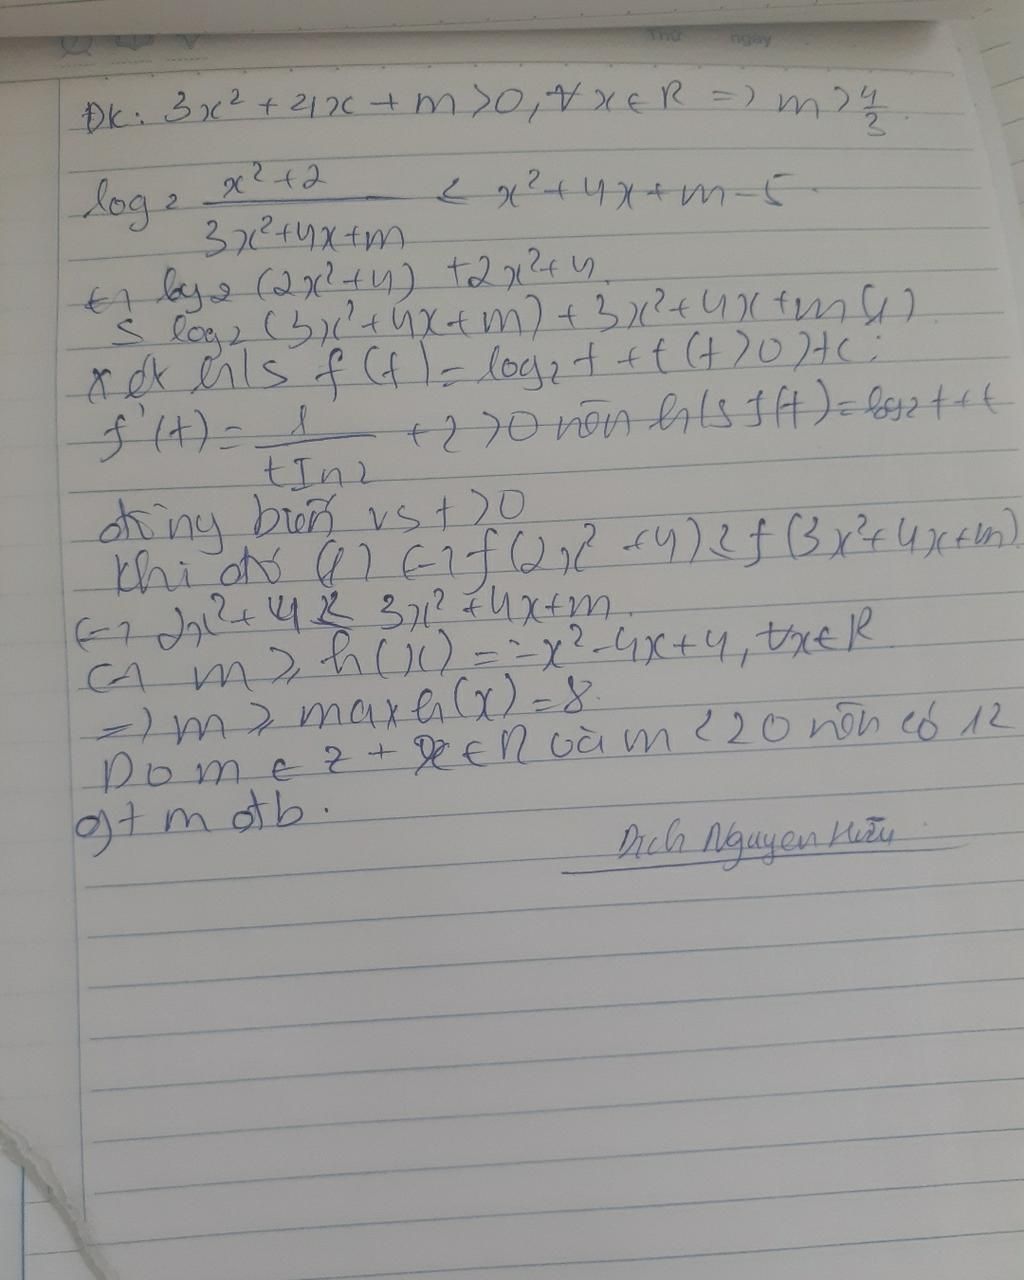 Thứ ngày
ĐK: 3x² + 4x + m > 0, ∀ x ∈ R => m > 4/3.
log₂ (x²+2)/(3x²+4x+m) ≤ x²+4x+m-5.
<-> log₂ (2x²+4) + 2x²+4
≤ log₂ (3x²+4x+m) + 3x²+4x+m (1)
xét h/s f(t) = log₂ t + t (t>0) tc:
f'(t) = 1/(t ln2) + 2 > 0 nên h/s f(t) = log₂ t + t
đồng biến vs t > 0
Khi đó (1) <-> f(2x²+4) ≤ f(3x²+4x+m)
<-> 2x²+4 ≤ 3x²+4x+m.
<-> m ≥ h(x) = -x²-4x+4, ∀x∈R
=> m ≥ max h(x) = 8.
Do m ∈ Z + ∈ R và m < 20 nên có 12
gt m đtb.
Dịch Nguyen Hữu